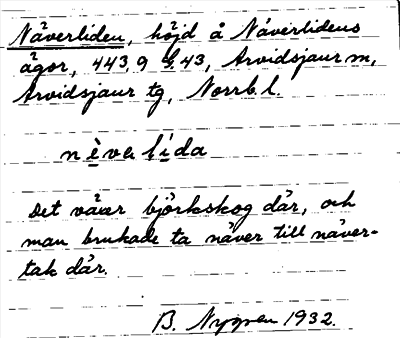 Näverliden, höjd å Näverlidens
ägor, 443,9 43, Arvidsjaur m,
Arvidsjaur tg, Norrb. l.
nèvelída
Det växer björkskog där, och
man brukade ta näver till näver-
tak där.
B. Nygren 1932.